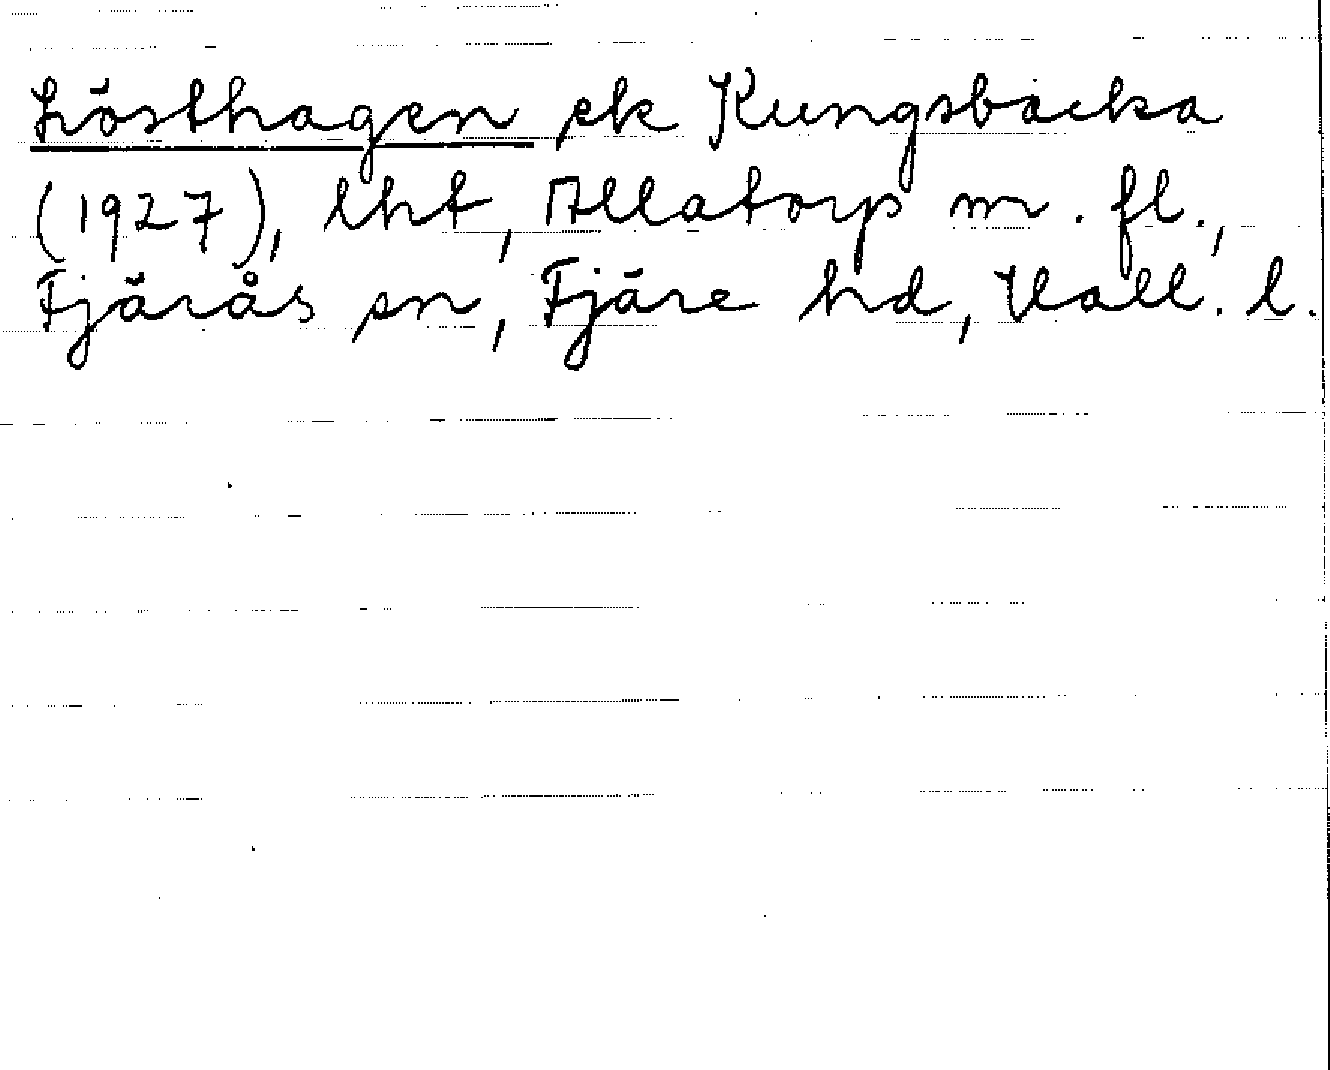 Lösthagen ek Kungsbacka
(1927), lht, Allatorp m. fl.,
Fjärås sn, Fjäre hd, Hall. l.